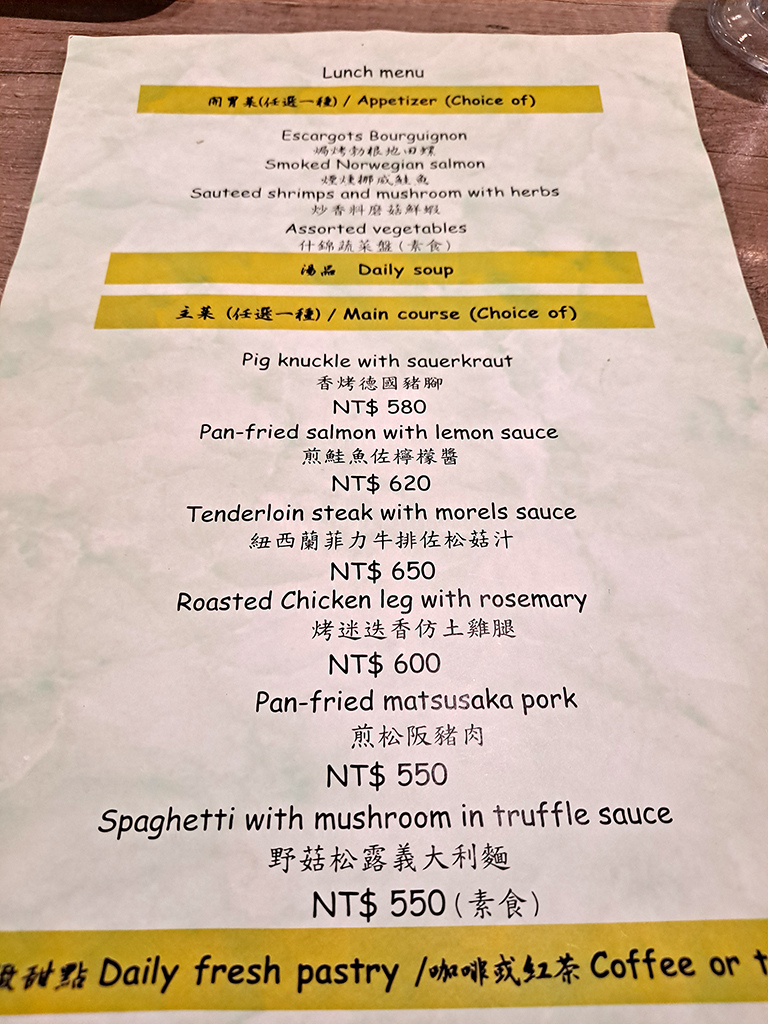 Lunch menu
開胃菜(任選一種) / Appetizer (Choice of)
Escargots Bourguignon
焗烤勃根地田螺
Smoked Norwegian salmon
煙燻挪威鮭魚
Sauteed shrimps and mushroom with herbs
炒香料磨菇鮮蝦
Assorted vegetables
什錦蔬菜盤(素食)
湯品 Daily soup
主菜 (任選一種) / Main course (Choice of)
Pig knuckle with sauerkraut
香烤德國豬腳
NT$ 580
Pan-fried salmon with lemon sauce
煎鮭魚佐檸檬醬
NT$ 620
Tenderloin steak with morels sauce
紐西蘭菲力牛排佐松菇汁
NT$ 650
Roasted Chicken leg with rosemary
烤迷迭香仿土雞腿
NT$ 600
Pan-fried matsusaka pork
煎松阪豬肉
NT$ 550
Spaghetti with mushroom in truffle sauce
野菇松露義大利麵
NT$ 550(素食)
甜點 Daily fresh pastry /咖啡或紅茶 Coffee or